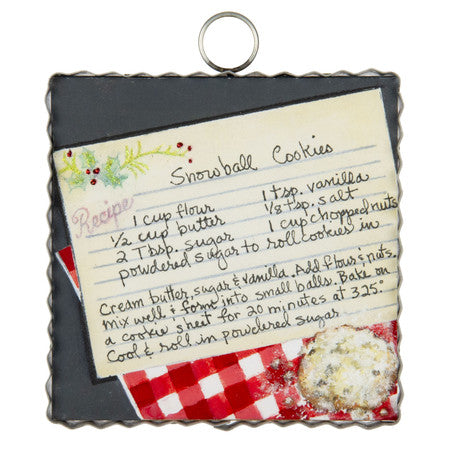 Snowball Cookies
Recipe
1 cup flour 1 tsp. vanilla
½ cup butter ⅛ tsp. salt
2 Tbsp. sugar 1 cup chopped nuts
powdered sugar to roll cookies in
Cream butter, sugar & vanilla. Add flour & nuts.
mix well & form into small balls. Bake on
a cookie sheet for 20 minutes at 325°
Cool & roll in powdered sugar